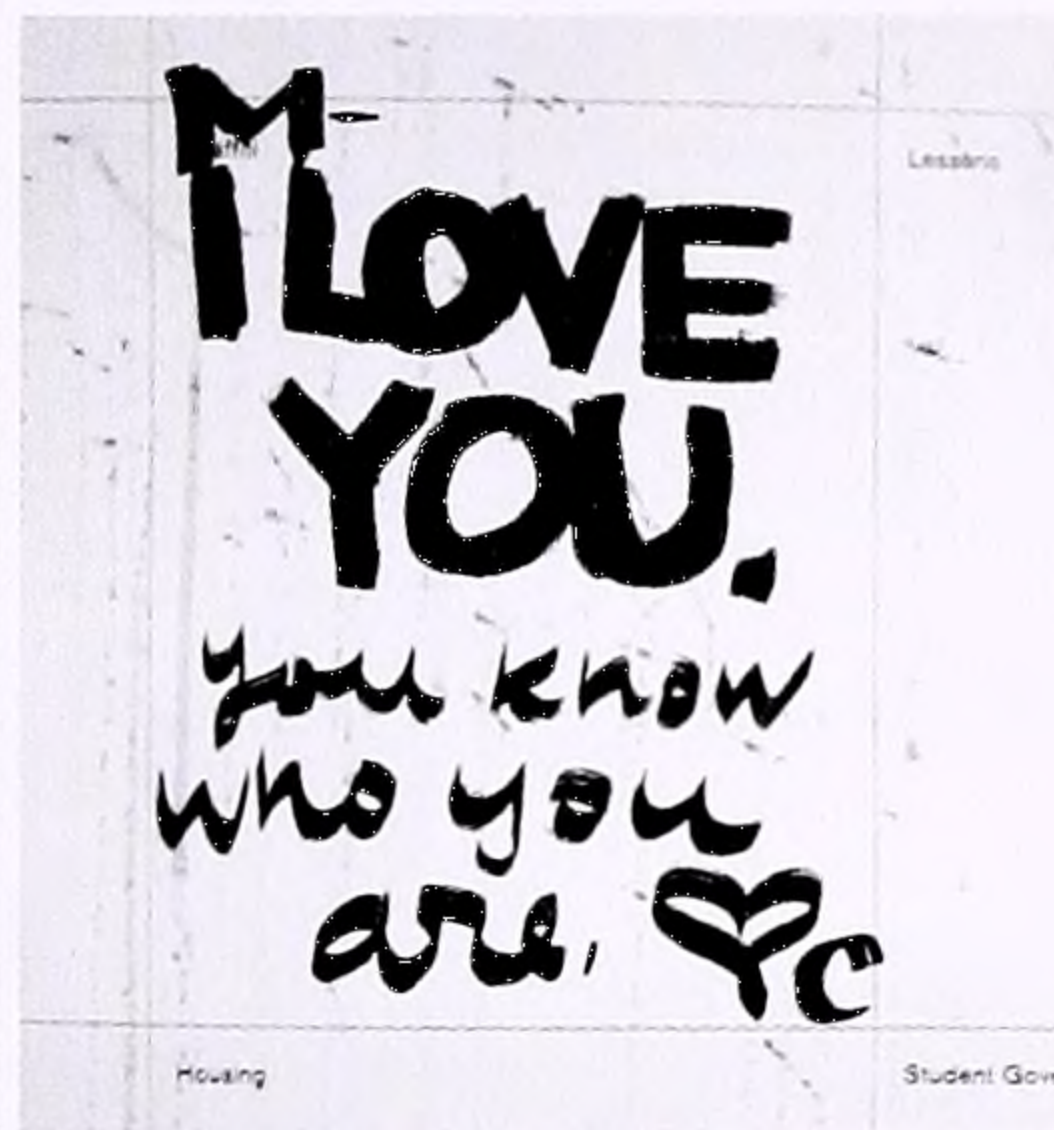 M-
Lessons
I LOVE
YOU.
you know
who you
are. ♥C
Housing
Student Gov